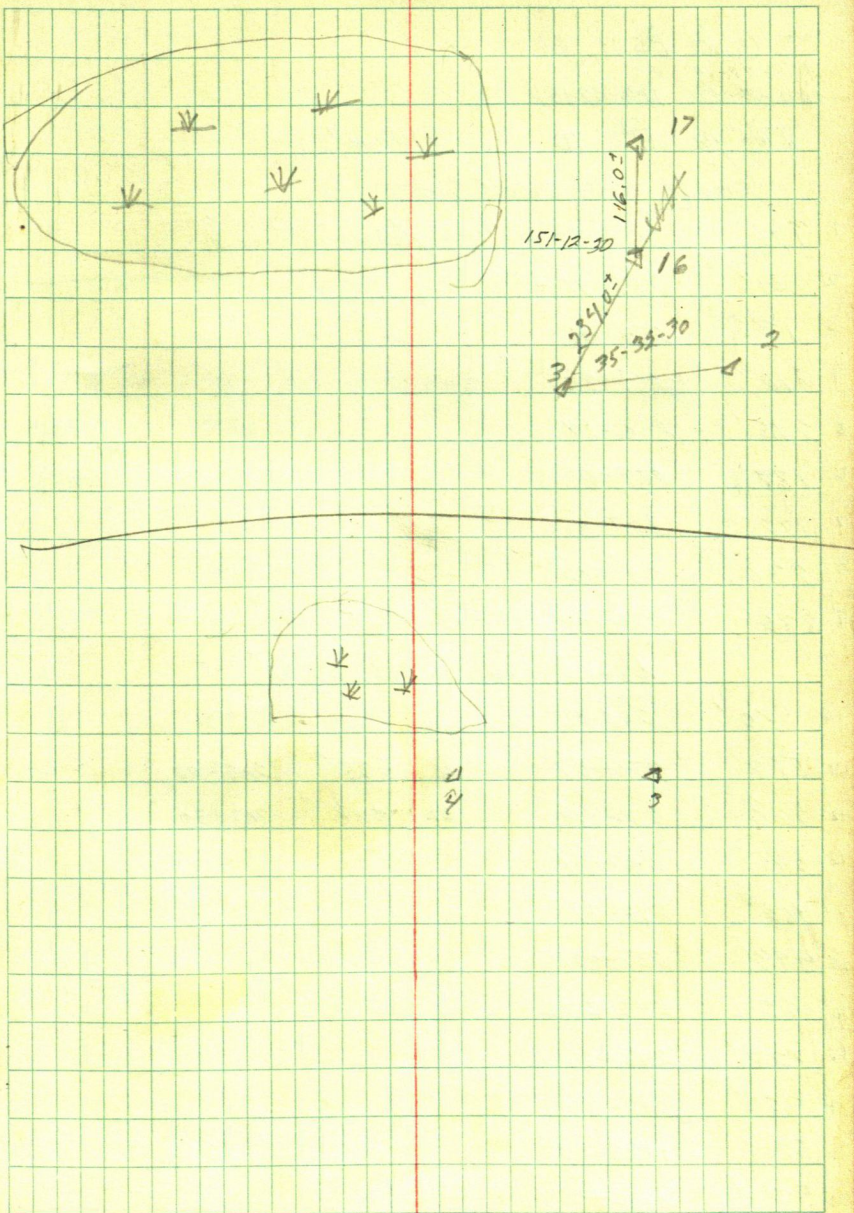 17
116.0±
151-12-30
16
234.0±
35-35-30
3
2
4
3